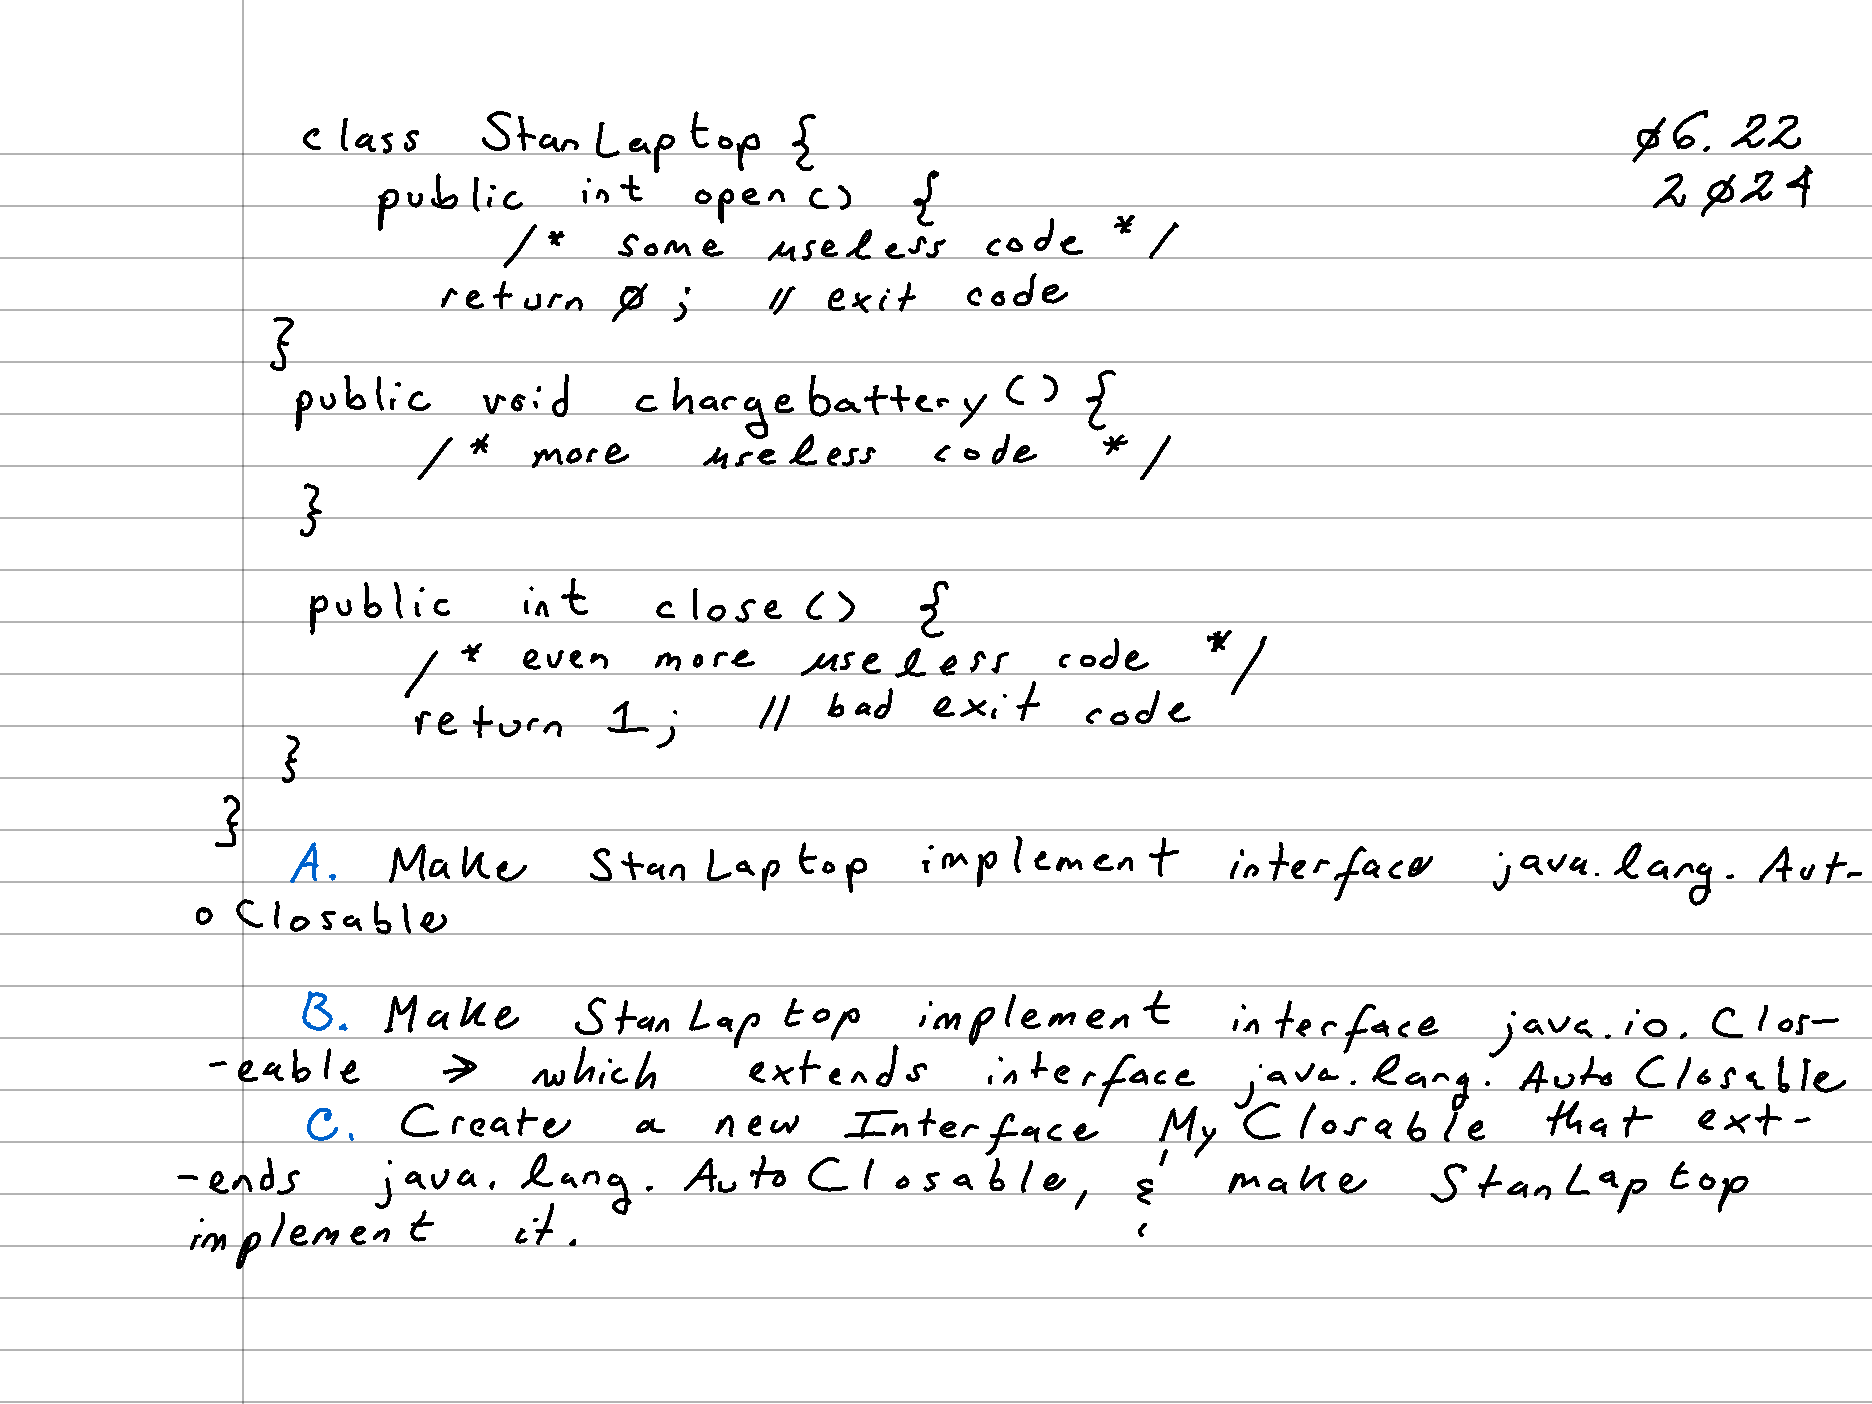 class StanLaptop {
ø6.22
public int open() {
2ø24
/* some useless code */
return ø; // exit code
}
public void chargebattery() {
/* more useless code */
}
public int close() {
/* even more useless code */
return 1; // bad exit code
}
}
A. Make StanLaptop implement interface java.lang.Aut-
oClosable
B. Make StanLaptop implement interface java.io.Clos-
-eable → which extends interface java.lang.AutoClosable
C. Create a new Interface MyClosable that ext-
-ends java.lang.AutoClosable, & make StanLaptop
implement it.